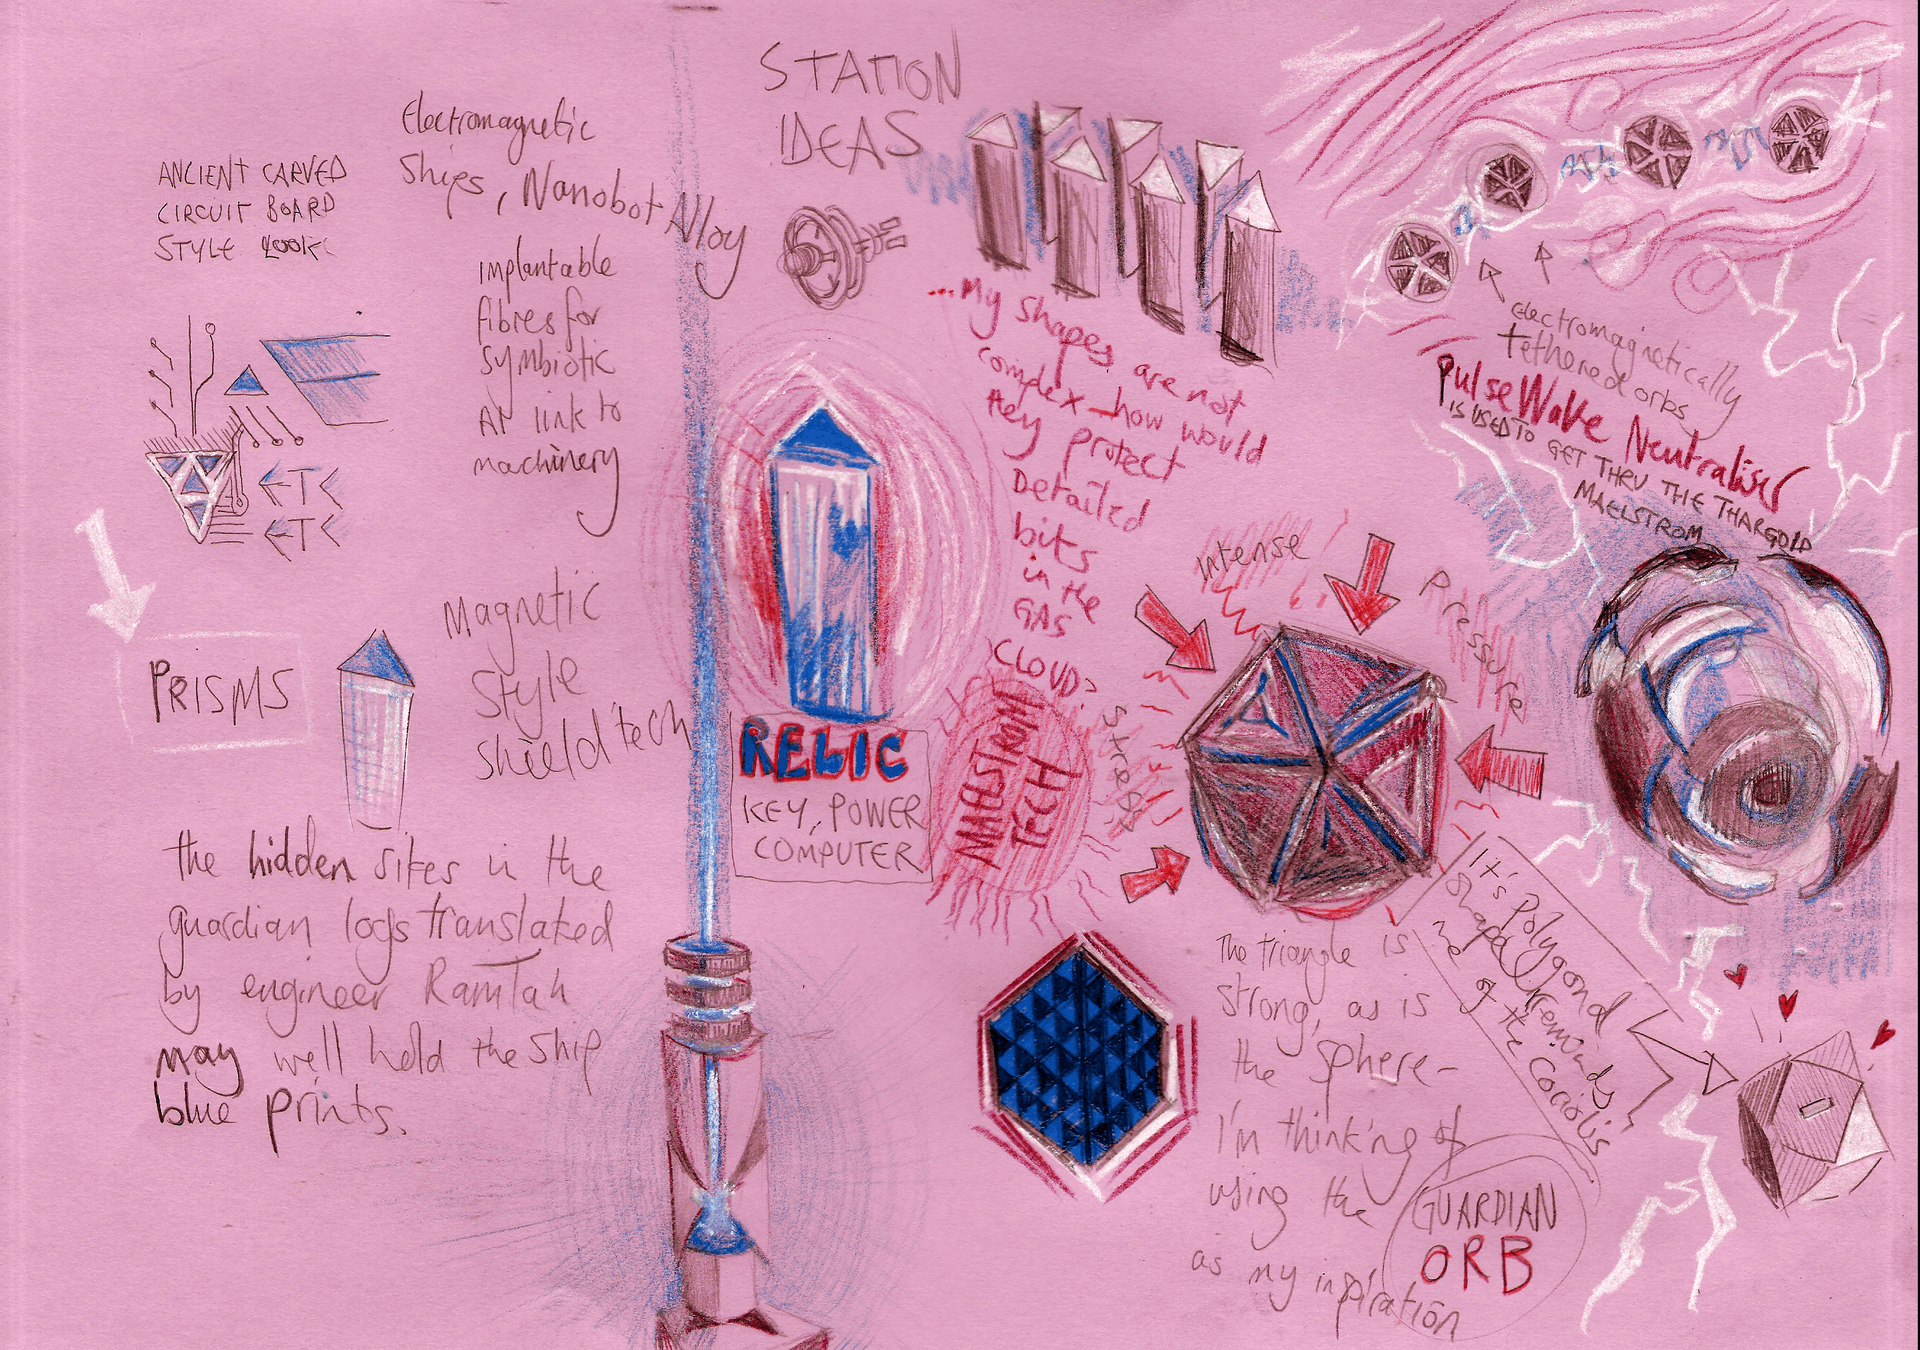 STATION
IDEAS
Electromagnetic
Ships, Nanobot Alloy
ANCIENT CARVED
CIRCUIT BOARD
STYLE LOOK
implantable
fibres for
symbiotic
AI link to
machinery
ETC
ETC
PRISMS
Magnetic
Style
shield tech
the hidden sites in the
guardian logs translated
by engineer RamTah
may well hold the ship
blue prints.
RELIC
KEY, POWER
COMPUTER
...My shapes are not
complex - how would
they protect
Detailed
bits
in the
GAS
CLOUD?
MAELSTROM
TECH
Electromagnetically
tethered orbs
Pulse Wave Neutraliser
IS USED TO GET THRU THE THARGOID
MAELSTROM
Intense
Pressure
Stress
It's Polygond
Shape reminds
me of the Coriolis
The triangle is
strong, as is
the sphere-
I'm thinking of
using the
GUARDIAN
ORB
as my inspiration